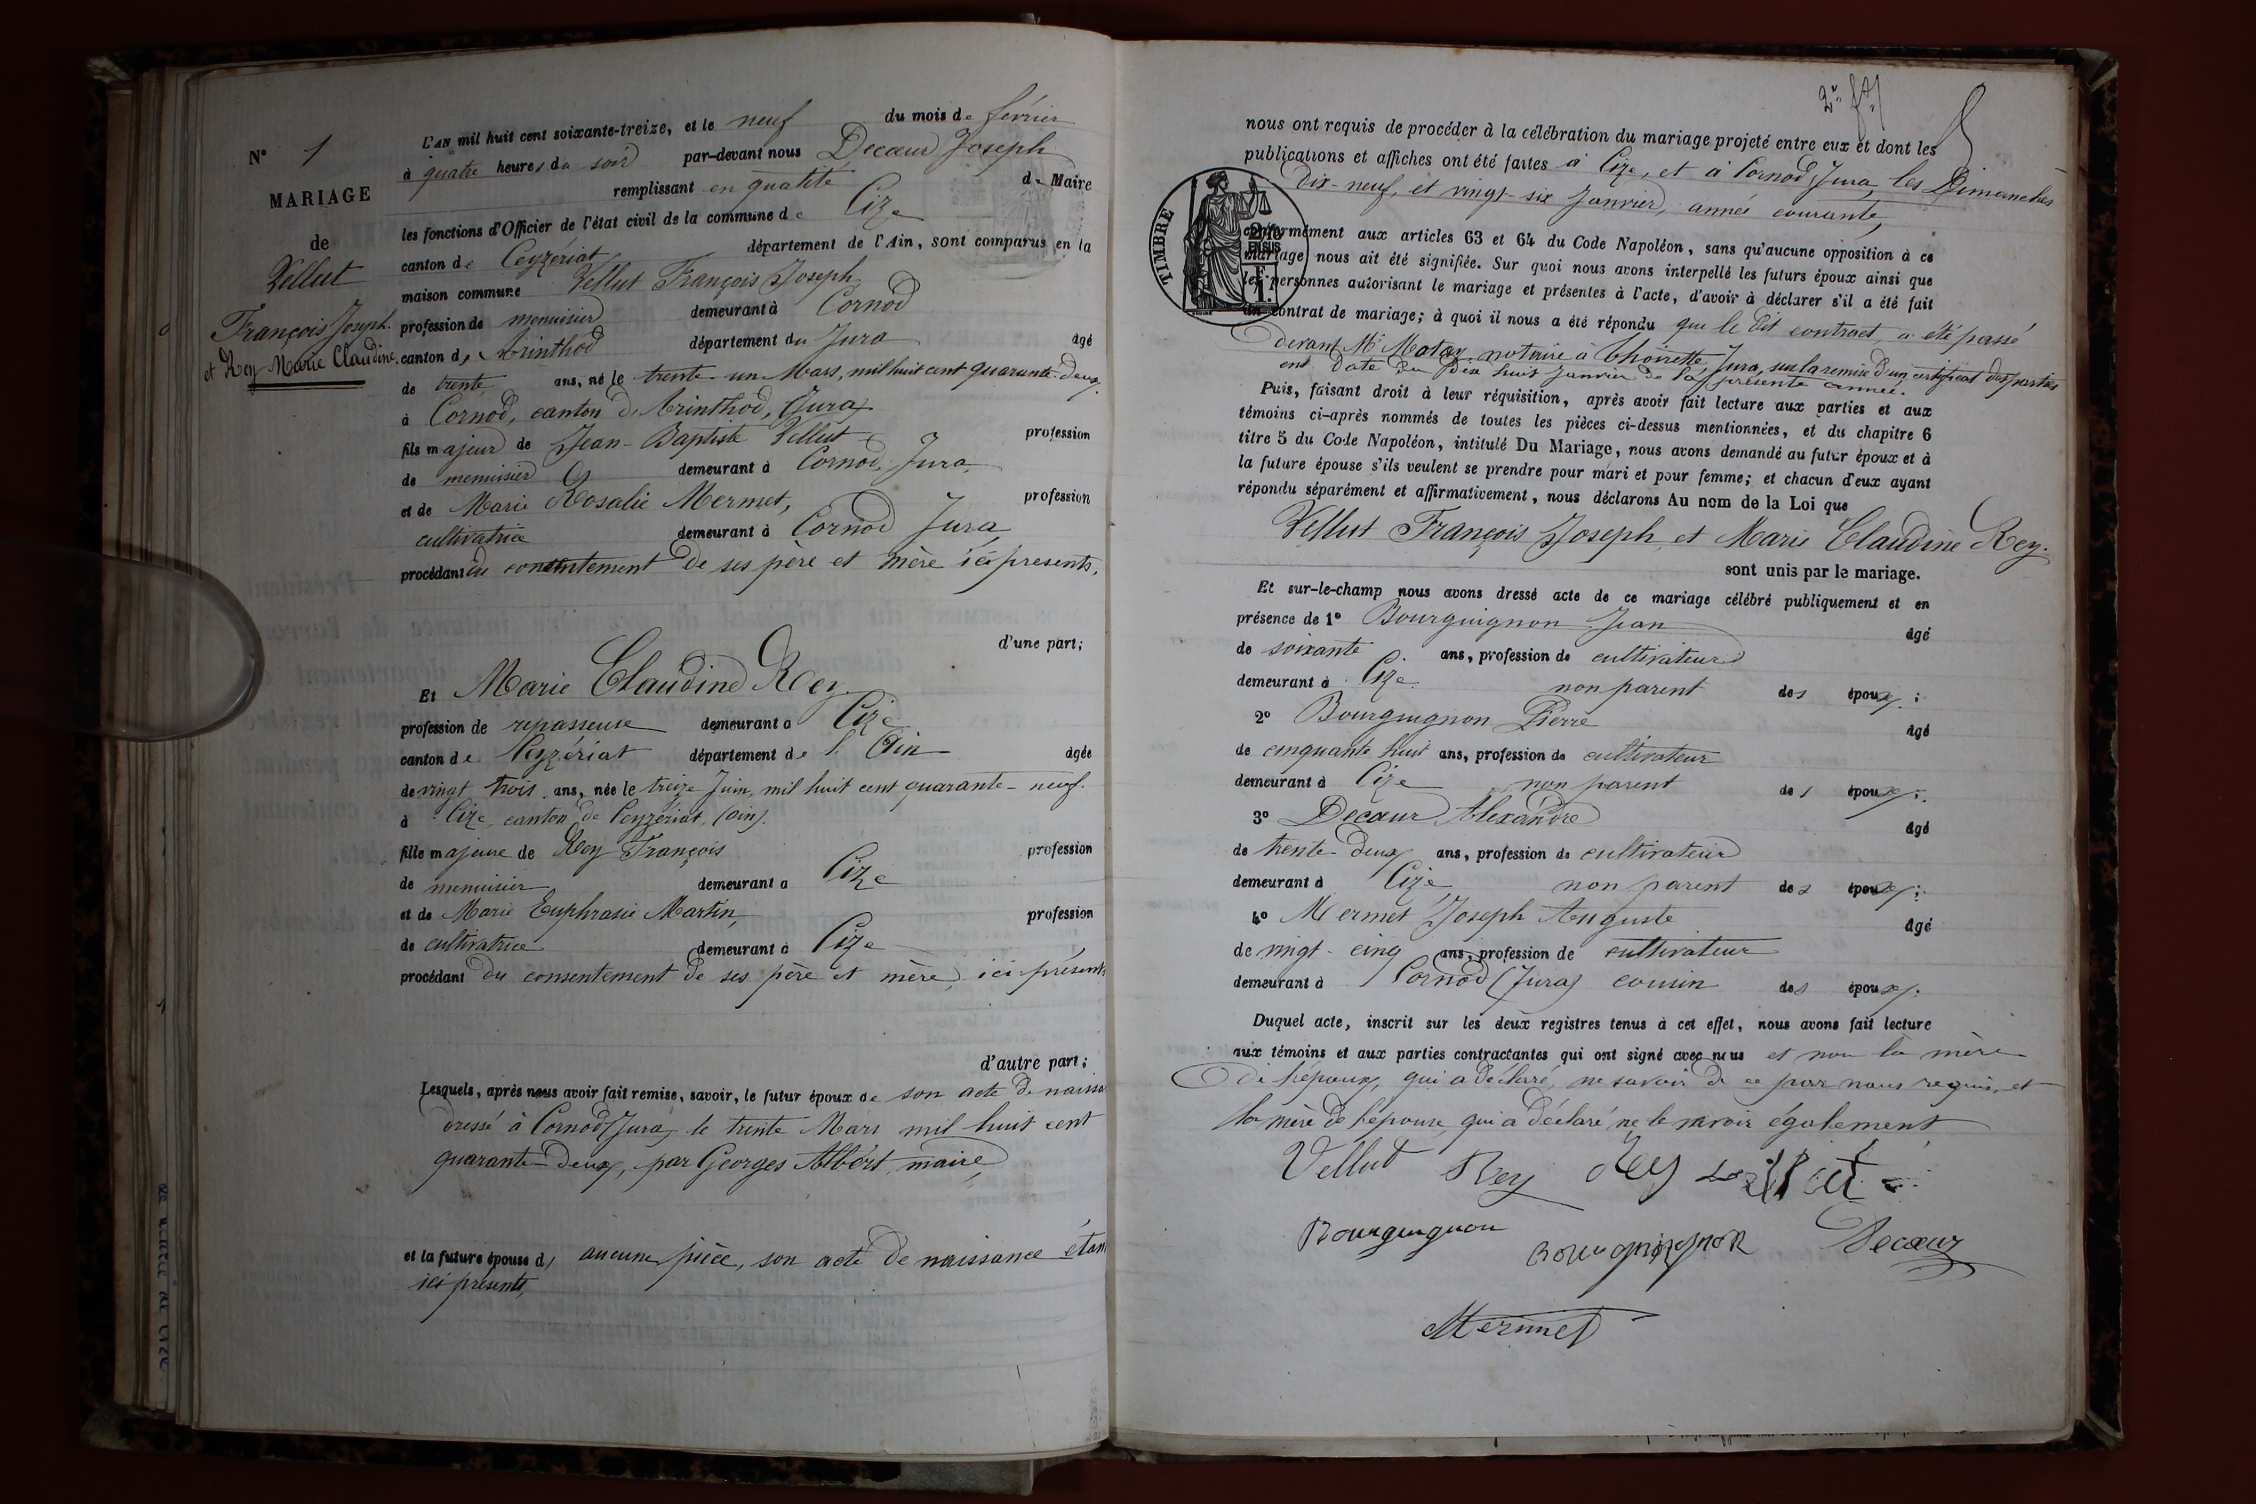 N° 1
MARIAGE
de
Vellut
François Joseph.
et Rey Marie Claudine.
L'AN mil huit cent soixante-treize, et le neuf du mois de février
à quatre heures du soir par-devant nous Decœur Joseph
remplissant en qualité de Maire
les fonctions d'Officier de l'état civil de la commune de Cize
canton de Ceyzériat, département de l'Ain, sont comparus en la
maison commune Vellut François Joseph
profession de menuisier demeurant à Cornod
canton d' Arinthod département du Jura âgé
de trente ans, né le trente-un Mars, mil huit cent quarante-deux.
à Cornod, canton d'Arinthod, (Jura)
fils majeur de Jean-Baptiste Vellut profession
de menuisier demeurant à Cornod, Jura,
et de Marie Rosalie Mermet, profession
cultivatrice demeurant à Cornod Jura,
procédant du consentement de ses père et mère ici présents,
d'une part;
Et Marie Claudine Rey
profession de repasseuse demeurant à Cize
canton de Ceyzériat département de l'Ain âgée
de vingt trois ans, née le treize Juin, mil huit cent quarante-neuf.
à Cize, canton de Ceyzériat, (Ain).
fille majeure de Rey François profession
de menuisier demeurant à Cize
et de Marie Euphrasie Martin, profession
de cultivatrice demeurant à Cize
procédant du consentement de ses père et mère, ici présents
d'autre part;
Lesquels, après nous avoir fait remise, savoir, le futur époux de son acte de naissa
dressé à Cornod (Jura) le trente Mars mil huit cent
quarante-deux, par Georges Albert, maire,
et la future épouse d' aucune pièce, son acte de naissance étan
ici présente,
2e
nous ont requis de procéder à la célébration du mariage projeté entre eux et dont les
publications et affiches ont été faites à Cize, et à Cornod, Jura, les Dimanches
Dix-neuf, et vingt-six Janvier, année courante,
TIMBRE
2/10 EN SUS
1 F.
conformément aux articles 63 et 64 du Code Napoléon, sans qu'aucune opposition à ce
mariage nous ait été signifiée. Sur quoi nous avons interpellé les futurs époux ainsi que
les personnes autorisant le mariage et présentes à l'acte, d'avoir à déclarer s'il a été fait
un contrat de mariage; à quoi il nous a été répondu que le dit contract a été passé
devant Me notaire à Thoirette, Jura, sur la remise d'un certificat des parties
ent Date du dix huit Janvier de la présente année.
Puis, faisant droit à leur réquisition, après avoir fait lecture aux parties et aux
témoins ci-après nommés de toutes les pièces ci-dessus mentionnées, et du chapitre 6
titre 5 du Code Napoléon, intitulé Du Mariage, nous avons demandé au futur époux et à
la future épouse s'ils veulent se prendre pour mari et pour femme; et chacun d'eux ayant
répondu séparément et affirmativement, nous déclarons Au nom de la Loi que
Vellut François Joseph, et Marie Claudine Rey.
sont unis par le mariage.
Et sur-le-champ nous avons dressé acte de ce mariage célébré publiquement et en
présence de 1° Bourguignon Jean âgé
de soixante ans, profession de cultivateur
demeurant à Cize. non parent des époux;
2° Bourguignon Pierre âgé
de cinquante huit ans, profession de cultivateur
demeurant à Cize non parent des époux;
3° Decœur Alexandre âgé
de trente-deux ans, profession de cultivateur
demeurant à Cize, non parent des époux;
4° Mermet Joseph Auguste âgé
de vingt-cinq ans, profession de cultivateur
demeurant à Cornod (Jura) cousin des époux.
Duquel acte, inscrit sur les deux registres tenus à cet effet, nous avons fait lecture
aux témoins et aux parties contractantes qui ont signé avec nous et non la mère
de l'époux, qui a déclaré, ne savoir de ce par nous requis, et
la mère de l'épouse, qui a déclaré ne le savoir également
Vellut Rey Rey
Bourguignon Bourguignon Decœur
Mermet